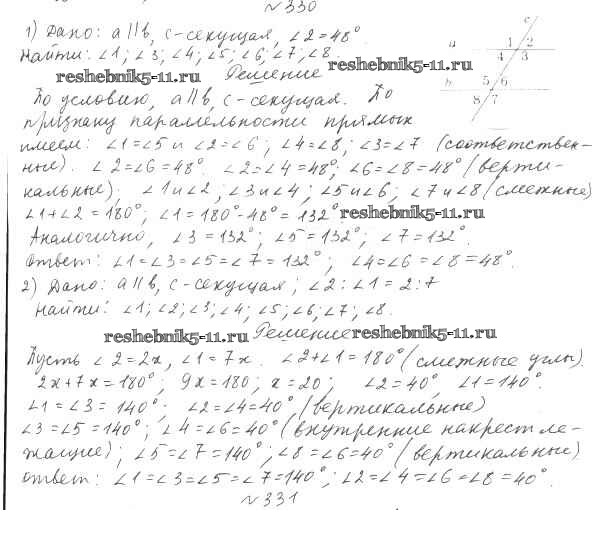 №330
1) Дано: a||b, c-секущая, ∠2=48°.
Найти: ∠1; ∠3; ∠4; ∠5; ∠6; ∠7; ∠8.
reshebnik5-11.ru Решение reshebnik5-11.ru
c
a 1 2
4 3
b 5 6
8 7
По условию, a||b, c-секущая. По
признаку параллельности прямых
имеем: ∠1=∠5 и ∠2=∠6; ∠4=∠8; ∠3=∠7 (соответствен-
ные). ∠2=∠6=48°. ∠2=∠4=48°; ∠6=∠8=48° (верти-
кальные); ∠1 и ∠2; ∠3 и ∠4; ∠5 и ∠6; ∠7 и ∠8 (смежные)
∠1+∠2=180°; ∠1=180°-48°=132° reshebnik5-11.ru
Аналогично, ∠3=132°; ∠5=132°; ∠7=132°.
Ответ: ∠1=∠3=∠5=∠7=132°; ∠4=∠6=∠8=48°.
2) Дано: a||b, c-секущая; ∠2:∠1=2:7
Найти: ∠1; ∠2; ∠3; ∠4; ∠5; ∠6; ∠7; ∠8.
reshebnik5-11.ru Решение reshebnik5-11.ru
Пусть ∠2=2x, ∠1=7x. ∠2+∠1=180° (смежные углы).
2x+7x=180°; 9x=180; x=20; ∠2=40°, ∠1=140°.
∠1=∠3=140°; ∠2=∠4=40° (вертикальные)
∠3=∠5=140°; ∠4=∠6=40° (внутренние накрест ле-
жащие); ∠5=∠7=140°; ∠8=∠6=40° (вертикальные)
Ответ: ∠1=∠3=∠5=∠7=140°; ∠2=∠4=∠6=∠8=40°.
№331